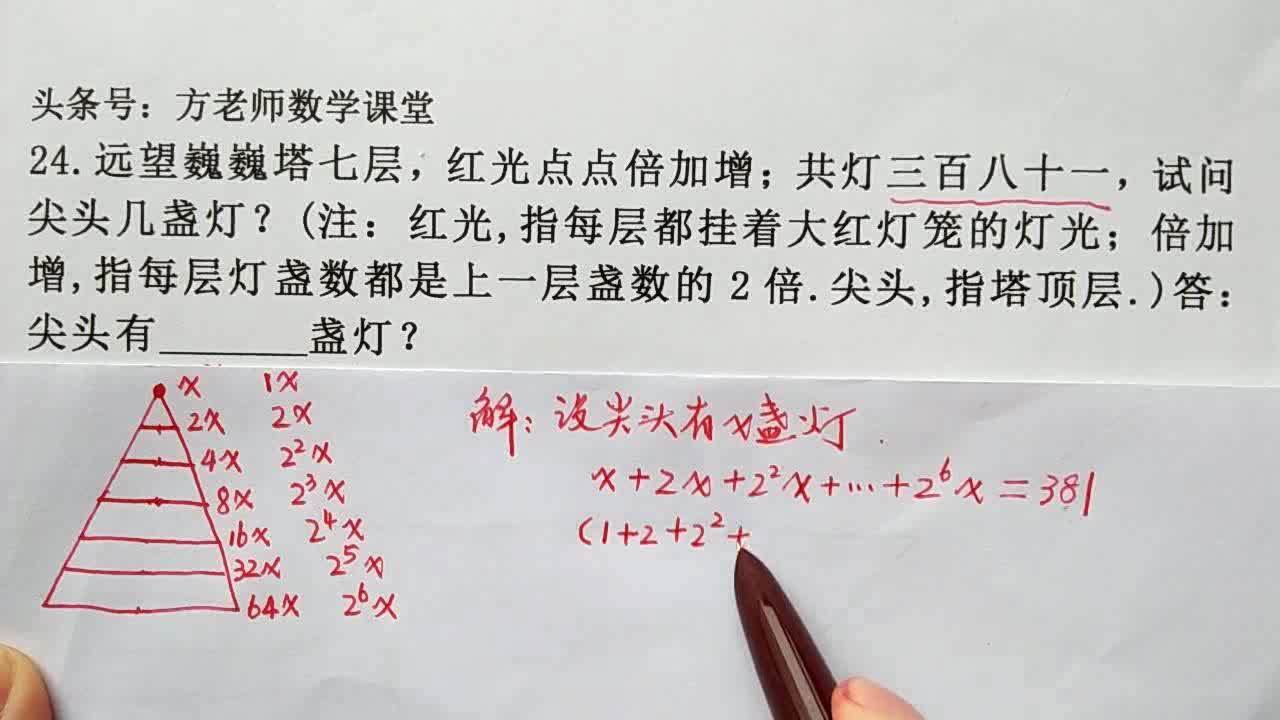 头条号：方老师数学课堂
24.远望巍巍塔七层，红光点点倍加增；共灯三百八十一，试问
尖头几盏灯？(注：红光,指每层都挂着大红灯笼的灯光；倍加
增,指每层灯盏数都是上一层盏数的2倍.尖头,指塔顶层.)答：
尖头有______盏灯？
x 1x
2x 2x
4x 2²x
8x 2³x
16x 2⁴x
32x 2⁵x
64x 2⁶x
解：设尖头有x盏灯.
x+2x+2²x+…+2⁶x=381
(1+2+2²+